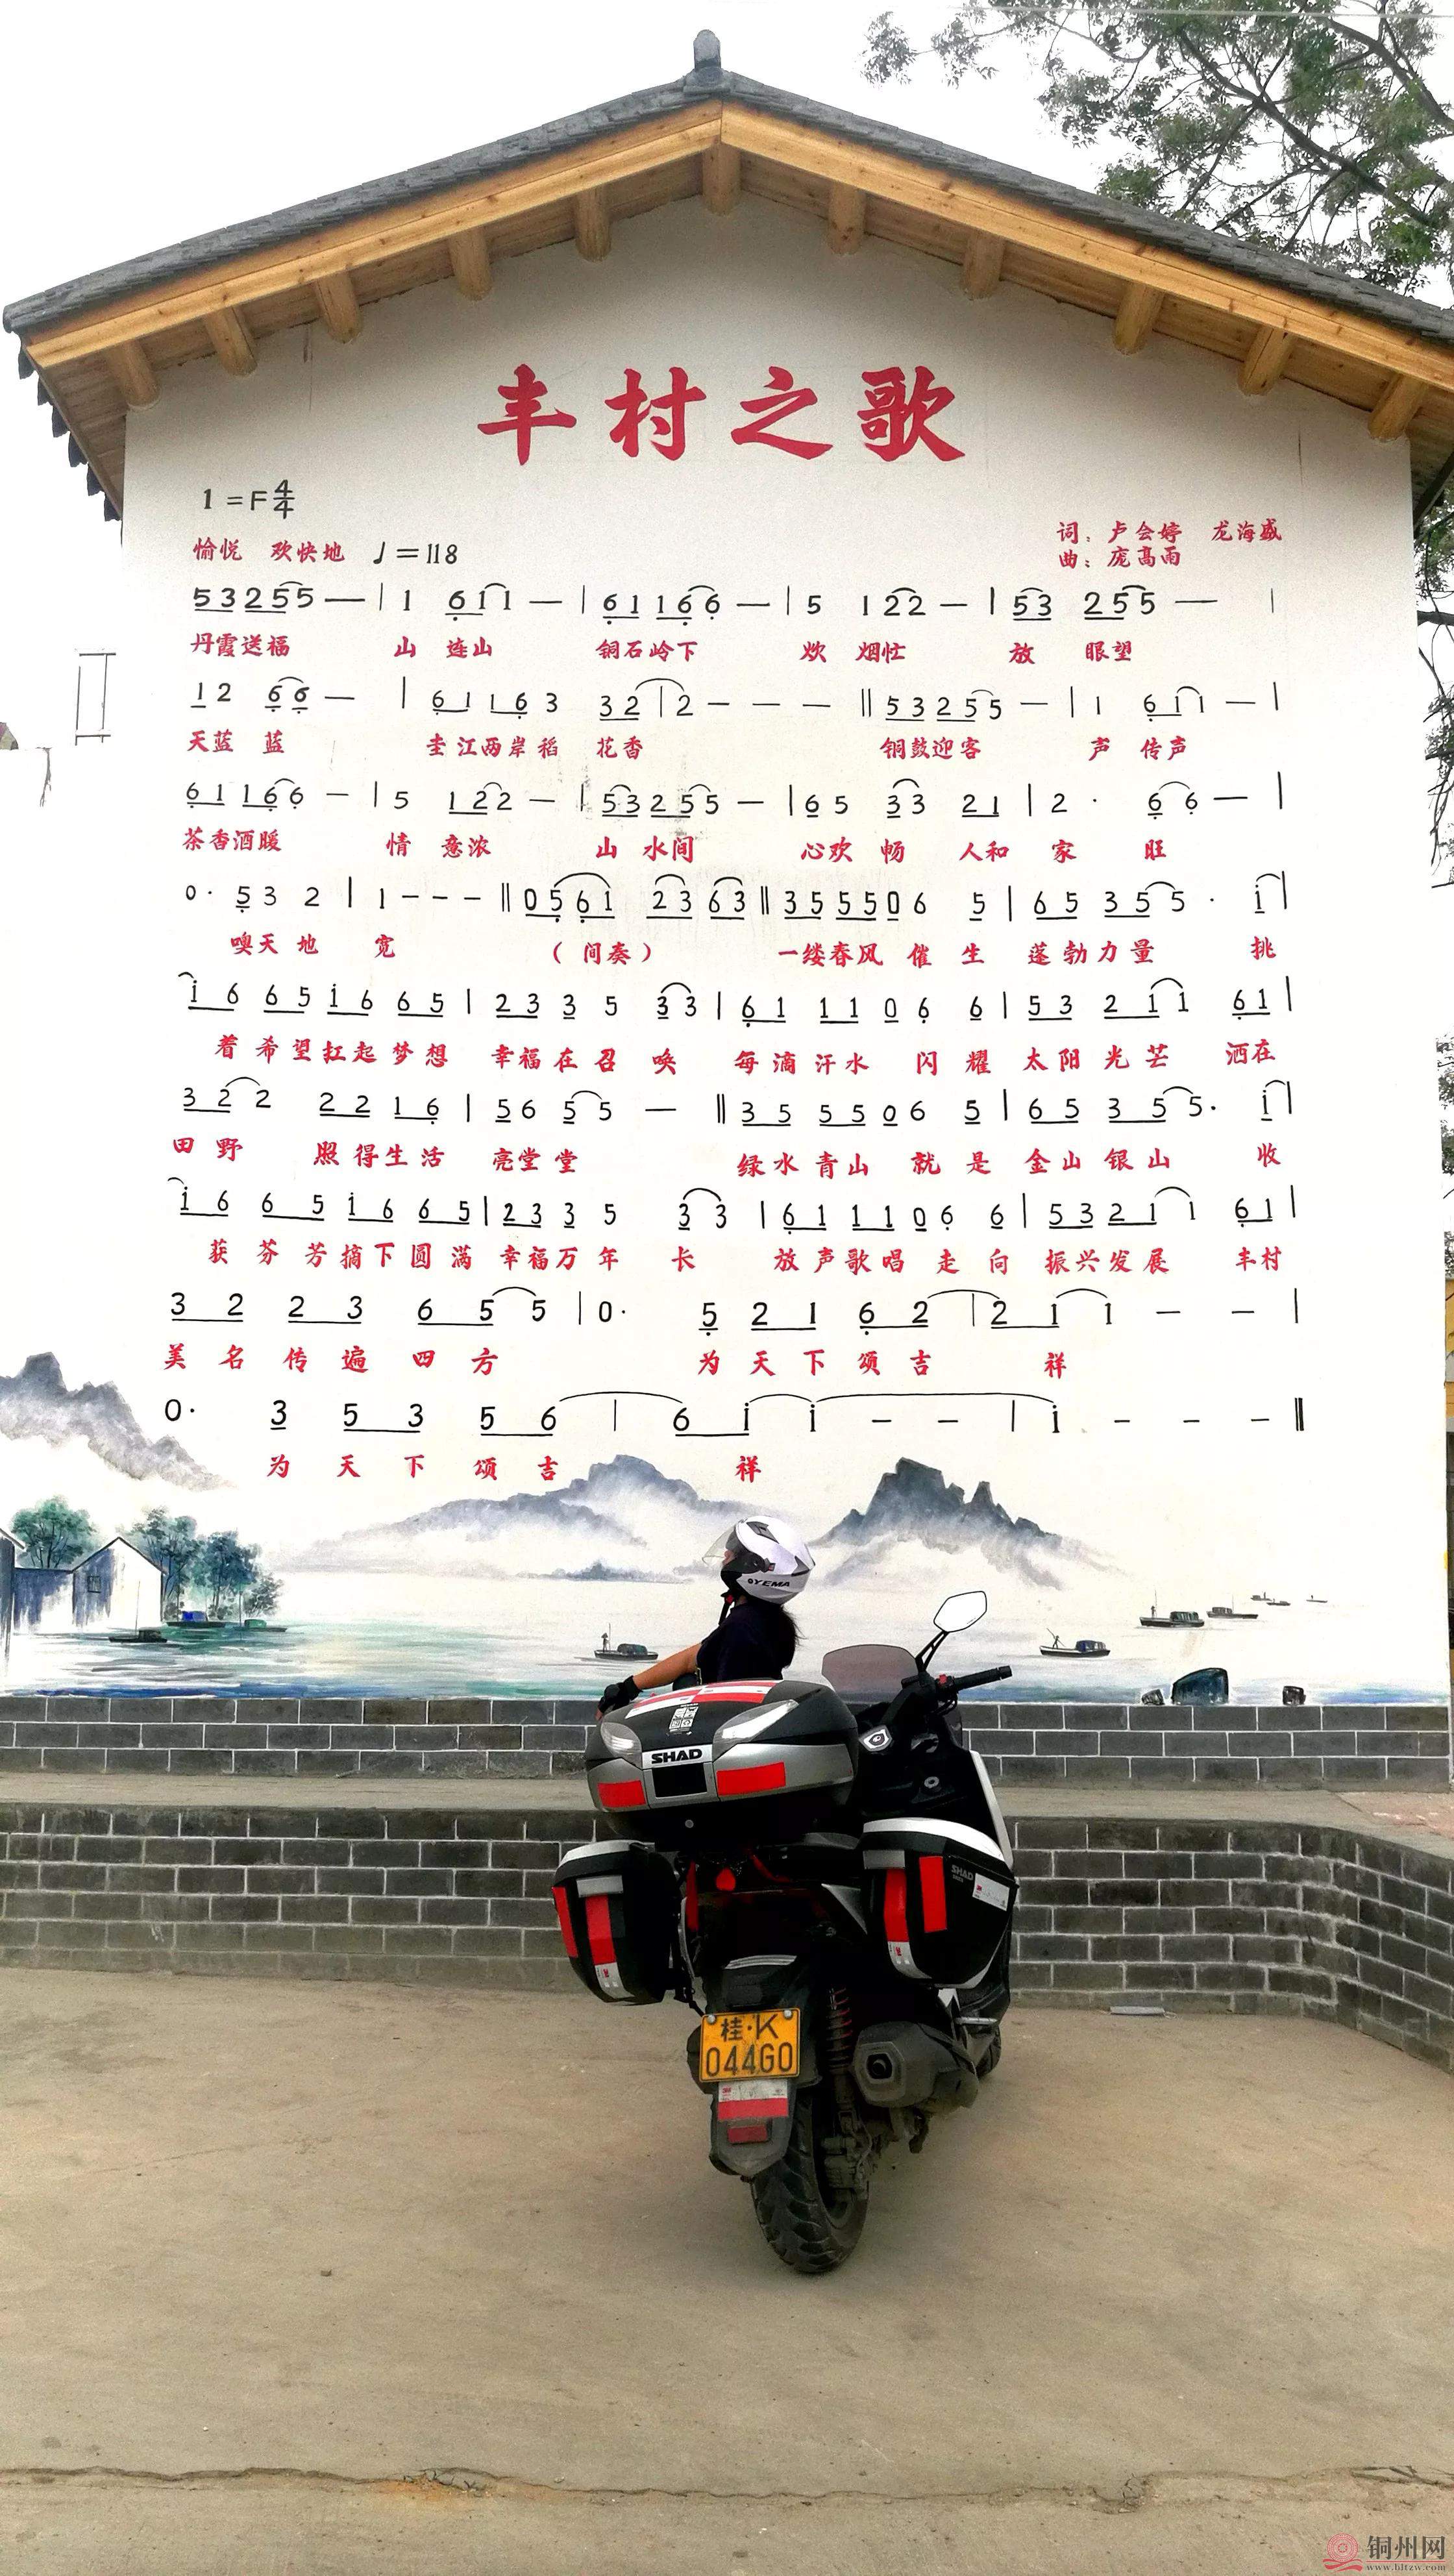 丰村之歌
1=F 4/4
愉悦 欢快地 ♩=118
词：卢会婷 龙海盛
曲：庞高雨
5 3 2 5 5 5 — | 1 6 1 1 — | 6 1 1 6 6 — | 5 1 2 2 — | 5 3 2 5 5 — |
丹霞送福 山 连山 铜石岭下 炊 烟忙 放 眼望
1 2 6 6 — | 6 1 1 6 3 3 2 | 2 — — — || 5 3 2 5 5 — | 1 6 1 1 — |
天蓝 蓝 圭江两岸稻 花香 铜鼓迎客 声 传声
6 1 1 6 6 — | 5 1 2 2 — | 5 3 2 5 5 — | 6 5 3 3 2 1 | 2 · 6 6 — |
茶香酒暖 情 意浓 山 水间 心欢 畅 人和 家 旺
0 · 5 3 2 | 1 - - - || 0 5 6 1 2 3 6 3 || 3 5 5 5 0 6 5 | 6 5 3 5 5 · i |
噢天 地 宽 （间奏） 一缕春风 催 生 蓬勃力量 挑
i 6 6 5 i 6 6 5 | 2 3 3 5 3 3 | 6 1 1 1 0 6 6 | 5 3 2 1 1 6 1 |
着希望扛起梦想 幸福在召 唤 每滴汗水 闪 耀 太阳光芒 洒在
3 2 2 2 2 1 6 | 5 6 5 5 — || 3 5 5 5 0 6 5 | 6 5 3 5 5 · i |
田野 照得生活 亮堂堂 绿水青山 就 是 金山银山 收
i 6 6 5 i 6 6 5 | 2 3 3 5 3 3 | 6 1 1 1 0 6 6 | 5 3 2 1 1 6 1 |
获芬芳摘下圆满 幸福万年 长 放声歌唱 走 向 振兴发展 丰村
3 2 2 3 6 5 5 | 0 · 5 2 1 6 2 | 2 1 1 — — |
美名传遍四方 为天下颂吉 祥
0 · 3 5 3 5 6 | 6 i i — — | i - - - ||
为 天下颂吉 祥
OYEMA
SHAD
SHAD
桂·K
044G0
铜州网
www.bltzw.com